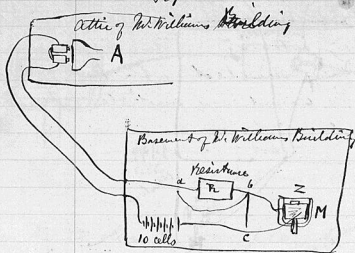 attic of Mr. Williams Building
A
Basement of Mr. Williams Building
Resistance
a R b
Z
M
C
10 cells